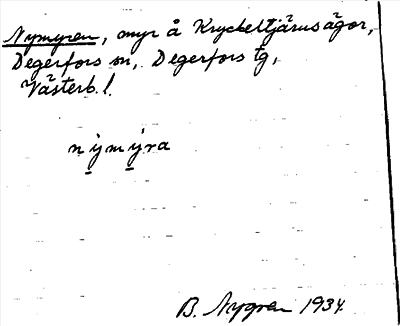 Nymyren, myr å Kryckeltjärns ägor,
Degerfors sn, Degerfors tg,
Västerb. l.
nỳ̠mỳ̠ra
B. Nygren 1934.